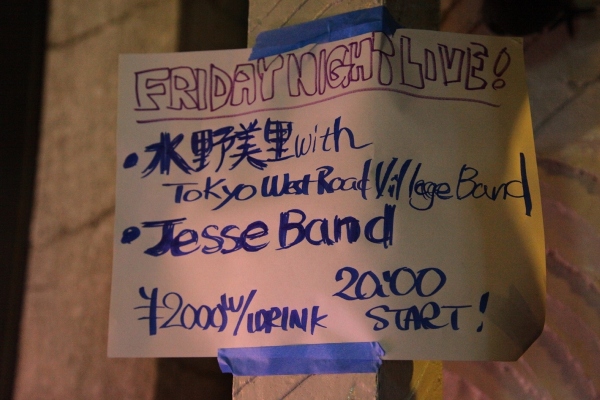 FRIDAY NIGHT LIVE!
• 水野美里 with
Tokyo West Road Village Band
• Jesse Band
¥2000 w/1DRINK
20:00
START!